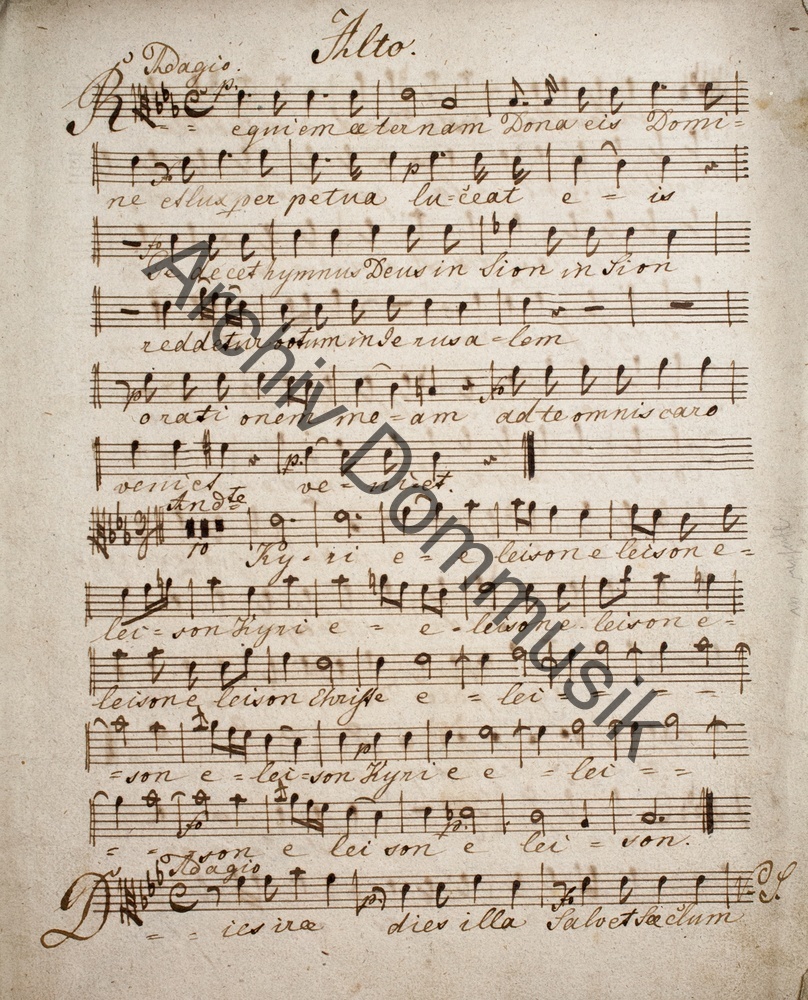 Alto.
Adagio.
p.
Requiem æternam Dona eis Domi=
ne et lux perpetua lu=ceat e = is
decet hymnus Deus in Sion in Sion
reddetur votum in Jerusa=lem
orati onem me=am ad te omnis caro
veniet ve = niet.
Andte
10
Ky - ri e = e leison e leison e =
lei= son Kyri e = e - leison e leison e =
leison e leison Christe e = lei = = =
=son e - lei=son Kyri e e = lei = =
= = son e lei son e lei = son.
Adagio
Dies iræ dies illa Solvet Sæclum
V: S.
Archiv Dommusik